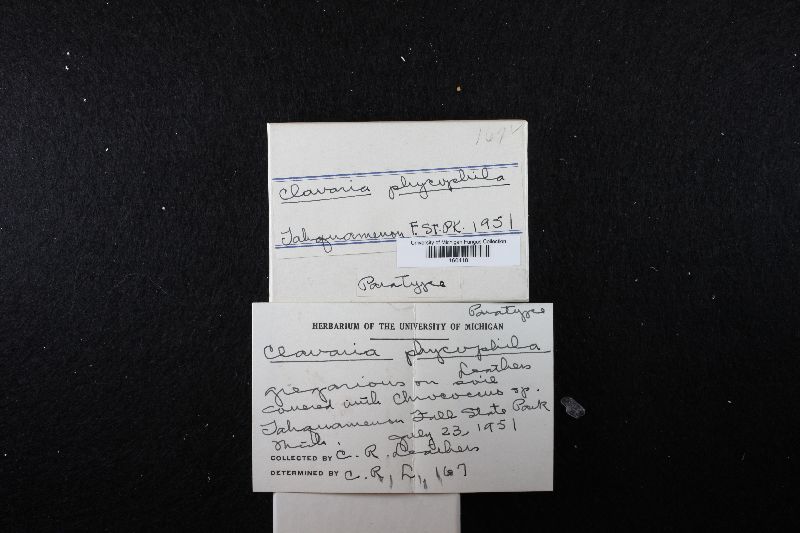 Clavaria phycophila
Tahquamenon F. St. PK. 1951
University of Michigan Fungus Collection
Paratype
Paratype
HERBARIUM OF THE UNIVERSITY OF MICHIGAN
Clavaria phycophila
Leathers
gregarious on soil
covered with Chroococcus sp.
Tahquamenon Fall State Park
Mich. July 23, 1951
COLLECTED BY C. R. Leathers
DETERMINED BY C. R. L. 167